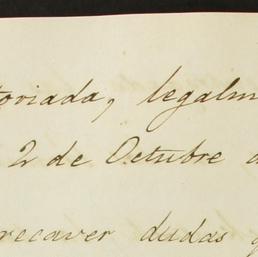 toriada, legalm
2 de Octubre d
recaver dudas q